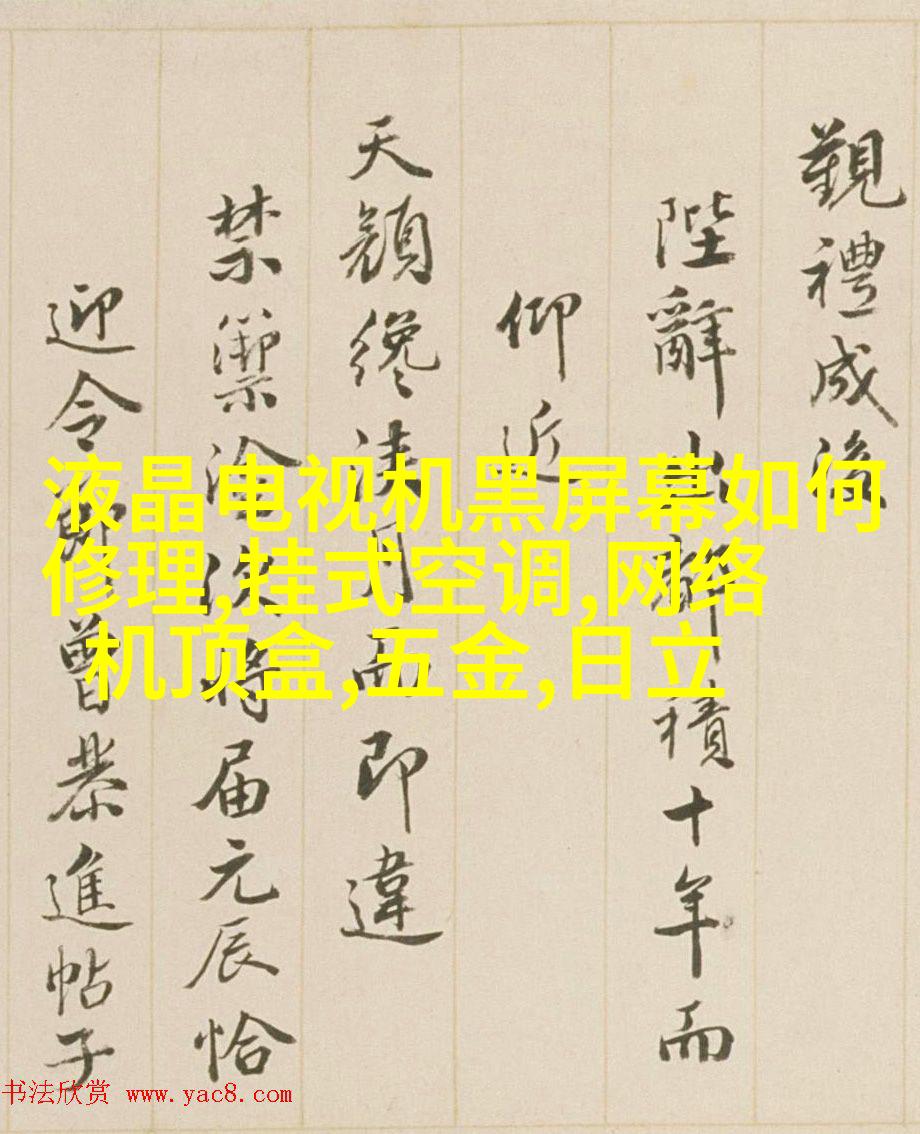 覲禮成後
陛辭積十年而
仰近
天顏纔浹月而即違
禁籞將届元辰恰
迎令節曾恭進帖子
液晶电视机黑屏幕如何
修理,挂式空调,网络
机顶盒,五金,日立
书法欣赏 www.yac8.com